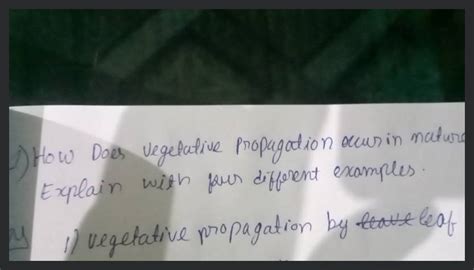 1) How Does vegetative propagation occur in nature
Explain with four different examples.
1) vegetative propagation by leave leaf